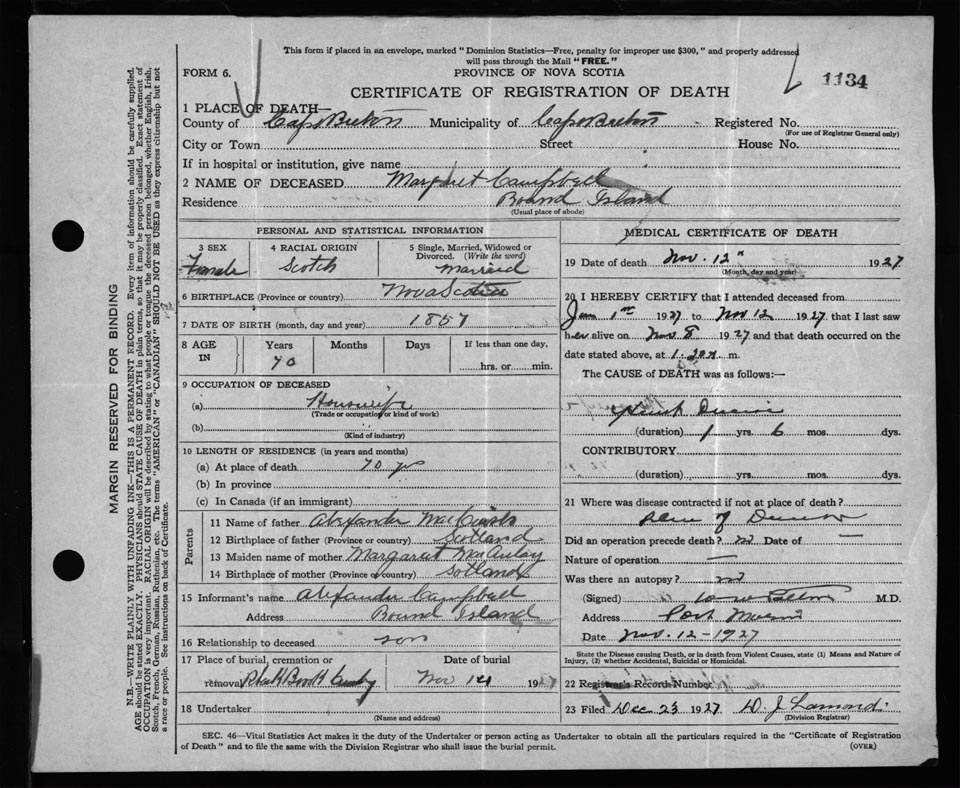 This form if placed in an envelope, marked "Dominion Statistics—Free, penalty for improper use $300," and properly addressed
will pass through the Mail "FREE."
FORM 6.
PROVINCE OF NOVA SCOTIA
1134
CERTIFICATE OF REGISTRATION OF DEATH
1 PLACE OF DEATH—
County of Cape Breton Municipality of Cape Breton Registered No.
(For use of Registrar General only)
City or Town Street House No.
If in hospital or institution, give name
2 NAME OF DECEASED Margaret Campbell
Residence Bound Island
(Usual place of abode)
PERSONAL AND STATISTICAL INFORMATION
3 SEX 4 RACIAL ORIGIN 5 Single, Married, Widowed or Divorced. (Write the word)
Female Scotch Married
6 BIRTHPLACE (Province or country) Nova Scotia
7 DATE OF BIRTH (month, day and year) 1857
8 AGE IN Years Months Days If less than one day,
70 hrs. or min.
9 OCCUPATION OF DECEASED
(a) Housewife
(Trade or occupation or kind of work)
(b)
(Kind of industry)
10 LENGTH OF RESIDENCE (in years and months)
(a) At place of death 70 yrs
(b) In province
(c) In Canada (if an immigrant)
Parents
11 Name of father Alexander
12 Birthplace of father (Province or country) Scotland
13 Maiden name of mother Margaret McAulay
14 Birthplace of mother (Province or country) Sotland
15 Informant's name Alexander Campbell
Address Bound Island
16 Relationship to deceased son
17 Place of burial, cremation or removal Date of burial
Nov 14 1927
18 Undertaker
(Name and address)
MEDICAL CERTIFICATE OF DEATH
19 Date of death Nov. 12" 1927
(Month, day and year)
20 I HEREBY CERTIFY that I attended deceased from
1st 1927 to Nov 12 1927 that I last saw
her alive on Nov 8 1927 and that death occurred on the
date stated above, at m.
The CAUSE of DEATH was as follows:—
(duration) 1 yrs. 6 mos. dys.
CONTRIBUTORY
(duration) yrs. mos. dys.
21 Where was disease contracted if not at place of death?
Place of
Did an operation precede death? no Date of —
Nature of operation —
Was there an autopsy? no
(Signed) M.D.
Address Port
Date Nov. 12-1927
State the Disease causing Death, or in death from Violent Causes, state (1) Means and Nature of
Injury, (2) whether Accidental, Suicidal or Homicidal.
22 Registrar's Record Number
23 Filed Dec 23 1927 D. J. Lamond
(Division Registrar)
SEC. 46—Vital Statistics Act makes it the duty of the Undertaker or person acting as Undertaker to obtain all the particulars required in the "Certificate of Registration
of Death" and to file the same with the Division Registrar who shall issue the burial permit.
(OVER)
MARGIN RESERVED FOR BINDING
N.B.—WRITE PLAINLY WITH UNFADING INK—THIS IS A PERMANENT RECORD. Every item of information should be carefully supplied.
AGE should be stated EXACTLY. PHYSICIANS should STATE CAUSE OF DEATH in plain terms, so that it may be properly classified. Exact statement of
OCCUPATION is very important. RACIAL ORIGIN will be described by stating to what people or tongue the deceased person belonged, whether English, Irish,
Scotch, French, German, Russian, Ruthenian, Etc. The terms "AMERICAN" or "CANADIAN" SHOULD NOT BE USED as they express citizenship but not
a race or people. See instructions on back of Certificate.